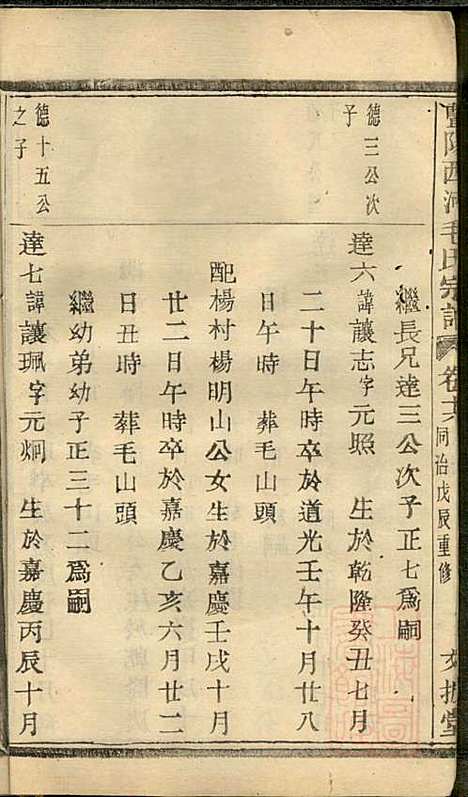 暨陽西河毛氏宗譜 卷十六 同治戊辰重修
繼長兄達三公次子正七爲嗣
德三公次子
達六 諱讓志字元照 生於乾隆癸丑七月
二十日午時卒於道光壬午十月廿八
日午時 葬毛山頭
配楊村楊明山公女生於嘉慶壬戌十月
廿二日午時卒於嘉慶乙亥六月廿二
日丑時 葬毛山頭
繼幼弟幼子正三十二爲嗣
德十五公之子
達七 諱讓珮字元炯 生於嘉慶丙辰十月